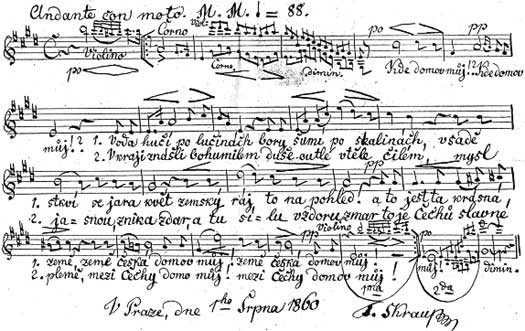 Andante con moto. M. M. ♩ = 88.
Violi:
Corno
po
pp
Violino
Corno
dimin.
Kde domov můj!? Kde domov
po
můj!? 1. Voda hučí po lučinách bory šumí po skalinách, v sadě
2. V kraji znáš-li bohumilém duše outlé v těle čilém, mysl
pp
1. skví se jara květ zemský ráj to na pohled! a to jest ta krásná,
2. ja=snou, znik a zdar, a tu sí=lu vzdoru zmar to je Čechů slavné
Violino
pp
po
1. země, země česká domov můj! země česká domov můj!
můj!
dimin.
2. plemě, mezi Čechy domov můj! mezi Čechy domov můj!
1ma
2da
V Praze, dne 1ho Srpna 1860
F. Škraup